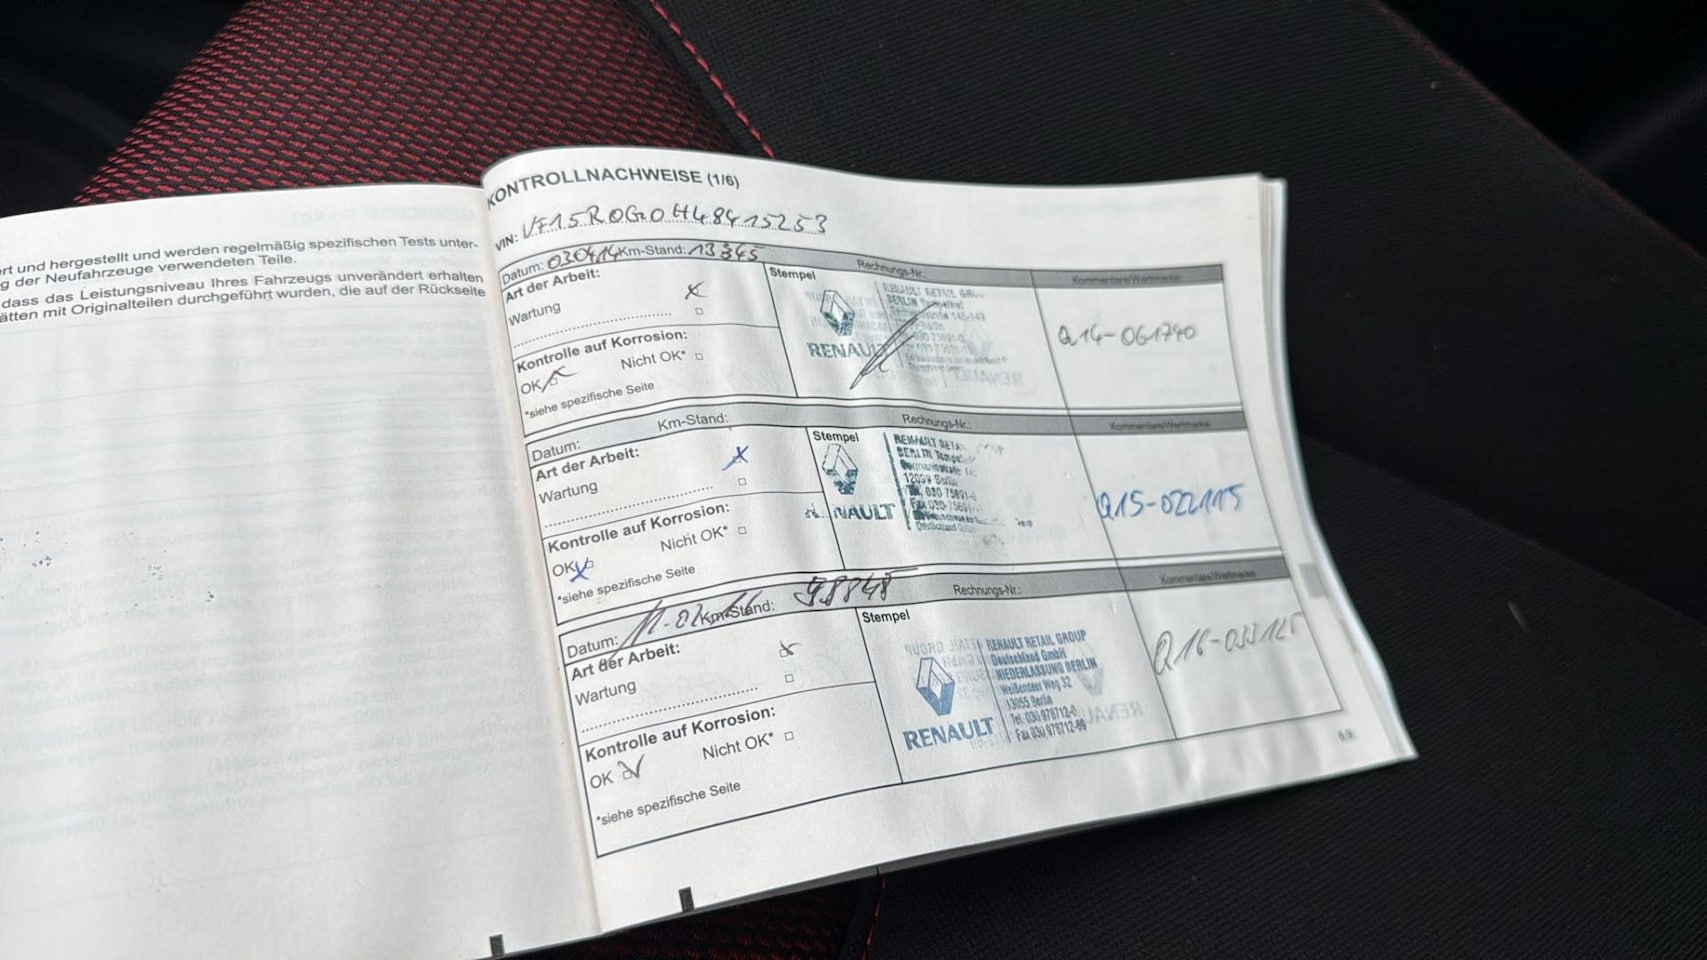 rt und hergestellt und werden regelmäßig spezifischen Tests unter-
g der Neufahrzeuge verwendeten Teile.
dass das Leistungsniveau Ihres Fahrzeugs unverändert erhalten
ätten mit Originalteilen durchgeführt wurden, die auf der Rückseite
KONTROLLNACHWEISE (1/6)
VIN: VF15R0G0H48415253
Datum: 030414 Km-Stand: 13345
Rechnungs-Nr.:
Kommentare/Wertmarke
Art der Arbeit:
Wartung
Kontrolle auf Korrosion:
OK
Nicht OK*
*siehe spezifische Seite
Stempel
RENAULT
RENAULT RETAIL
BERLIN
Q14-061740
Datum:
Km-Stand:
Rechnungs-Nr.:
Kommentare/Wertmarke
Art der Arbeit:
Wartung
Kontrolle auf Korrosion:
OK
Nicht OK*
*siehe spezifische Seite
Stempel
NAULT
BERLIN
Berlin
Q15-022115
Datum:
Km-Stand: 98848
Rechnungs-Nr.:
Kommentare/Wertmarke
Art der Arbeit:
Wartung
Kontrolle auf Korrosion:
OK
Nicht OK*
*siehe spezifische Seite
Stempel
RENAULT
RENAULT RETAIL GROUP
Deutschland GmbH
NIEDERLASSUNG BERLIN
Weißenseer Weg 32
13055 Berlin
Tel. 030 978712-0
Fax 030 978712-99